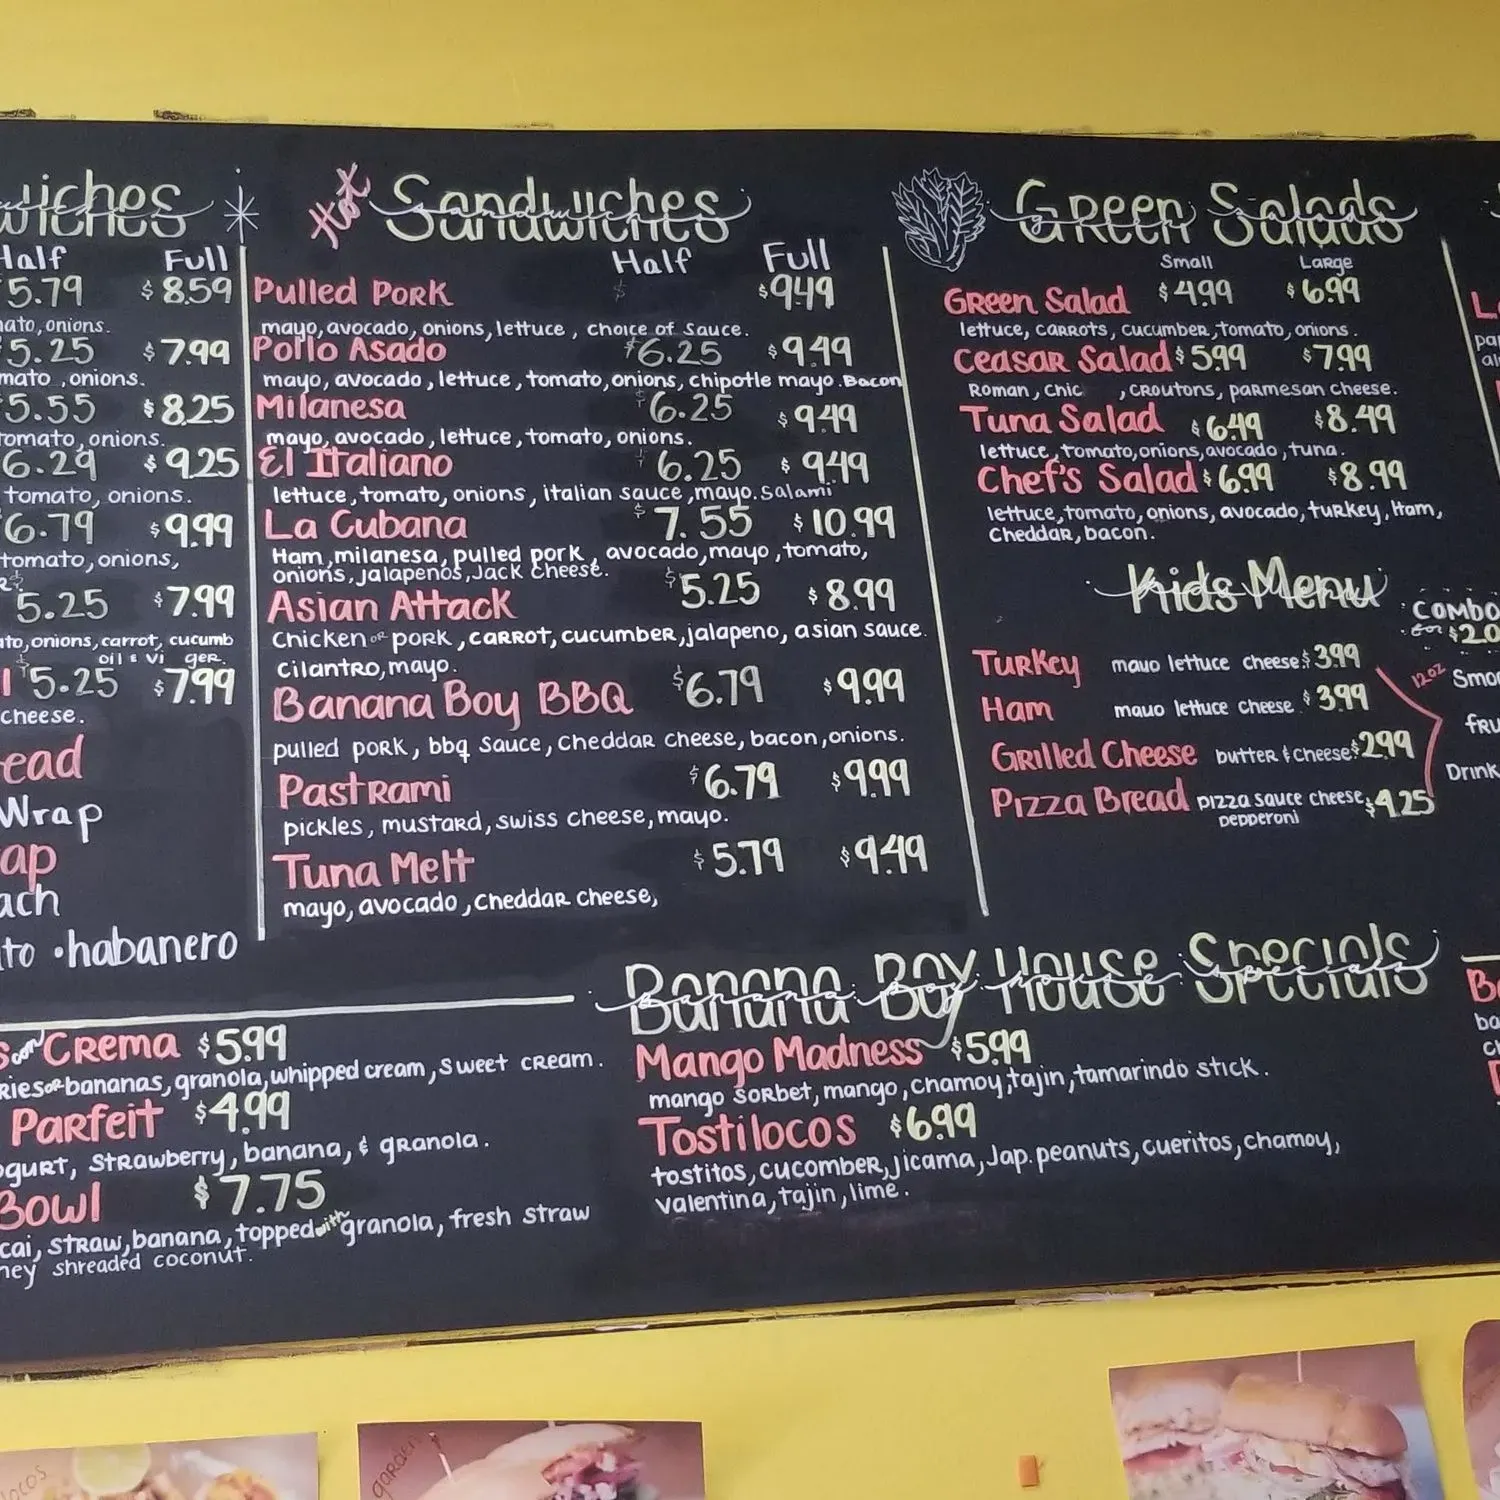 wiches
Half Full
5.79 $8.59
ato, onions.
5.25 $7.99
mato, onions.
5.55 $8.25
tomato, onions.
6.29 $9.25
tomato, onions.
6.79 $9.99
tomato, onions,
5.25 $7.99
ato, onions, carrot, cucumb
5.25 $7.99
cheese.
ead
Wrap
ap
ach
to • habanero
Hot Sandwiches
Half Full
Pulled Pork $ $9.49
mayo, avocado, onions, lettuce, choice of sauce.
Pollo Asado $6.25 $9.49
mayo, avocado, lettuce, tomato, onions, chipotle mayo. Bacon
Milanesa $6.25 $9.49
mayo, avocado, lettuce, tomato, onions.
El Italiano $6.25 $9.49
lettuce, tomato, onions, italian sauce, mayo. Salami
La Cubana $7.55 $10.99
Ham, milanesa, pulled pork, avocado, mayo, tomato,
onions, jalapeños, Jack cheese.
Asian Attack $5.25 $8.99
Chicken or pork, carrot, cucumber, jalapeno, asian sauce.
cilantro, mayo.
Banana Boy BBQ $6.79 $9.99
pulled pork, bbq sauce, cheddar cheese, bacon, onions.
Pastrami $6.79 $9.99
pickles, mustard, swiss cheese, mayo.
Tuna Melt $5.79 $9.49
mayo, avocado, cheddar cheese,
Green Salads
Small Large
Green Salad $4.99 $6.99
lettuce, carrots, cucumber, tomato, onions.
Ceasar Salad $5.99 $7.99
Roman, chic , croutons, parmesan cheese.
Tuna Salad $6.49 $8.49
lettuce, tomato, onions, avocado, tuna.
Chef's Salad $6.99 $8.99
lettuce, tomato, onions, avocado, turkey, Ham,
Cheddar, bacon.
Kids Menu
Combo
for $2.0
Turkey mayo lettuce cheese $3.99
Ham mayo lettuce cheese $3.99
Grilled Cheese butter & cheese $2.99
Pizza Bread pizza sauce cheese, $4.25
pepperoni
12oz
Smoo
fru
Drink
s con Crema $5.99
ries or bananas, granola, whipped cream, sweet cream.
Parfeit $4.99
ogurt, strawberry, banana, & granola.
Bowl $7.75
cai, straw, banana, topped with granola, fresh straw
ney shreaded coconut.
Banana Boy House Specials
Mango Madness $5.99
mango sorbet, mango, chamoy, tajin, tamarindo stick.
Tostilocos $6.99
tostitos, cucomber, jicama, Jap. peanuts, cueritos, chamoy,
valentina, tajin, lime.
locos
garden